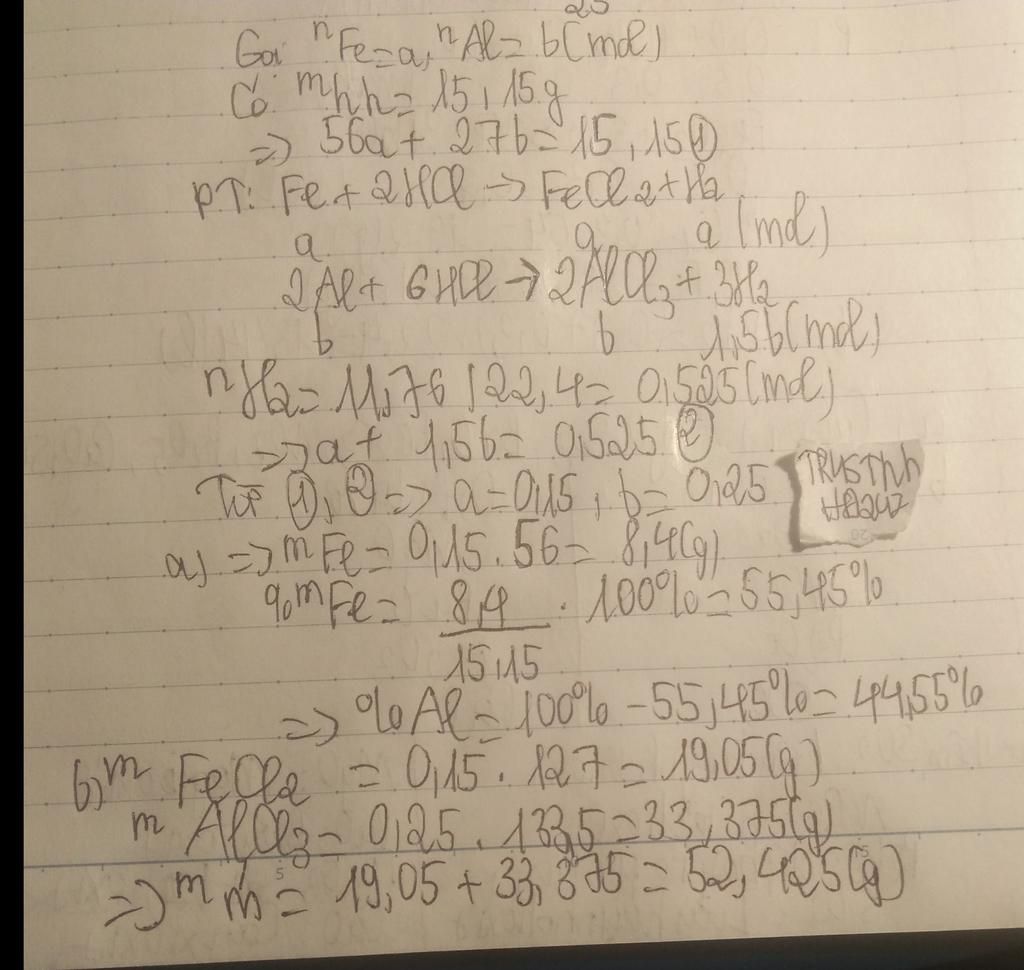 25
Gọi nFe=a, nAl= b(mol)
Có mhh= 15,15g
=> 56a+ 27b= 15,15 ①
PT: Fe + 2HCl -> FeCl2+H2
a a a (mol)
2Al+ 6HCl -> 2AlCl3 + 3H2
b b 1,5b(mol)
nH2= 11,76/22,4= 0,525(mol)
=> a+ 1,5b= 0,525 ②
Từ ①, ② => a=0,15, b= 0,25
TRUSThh
HB247
a) => mFe= 0,15.56= 8,4(g)
%mFe= 8,4/15,15 . 100%=55,45%
=> %Al= 100% -55,45%= 44,55%
b) m FeCl2 = 0,15. 127= 19,05(g)
m AlCl3= 0,25. 133,5=33,375(g)
=> m m'= 19,05 + 33,375= 52,425(g)